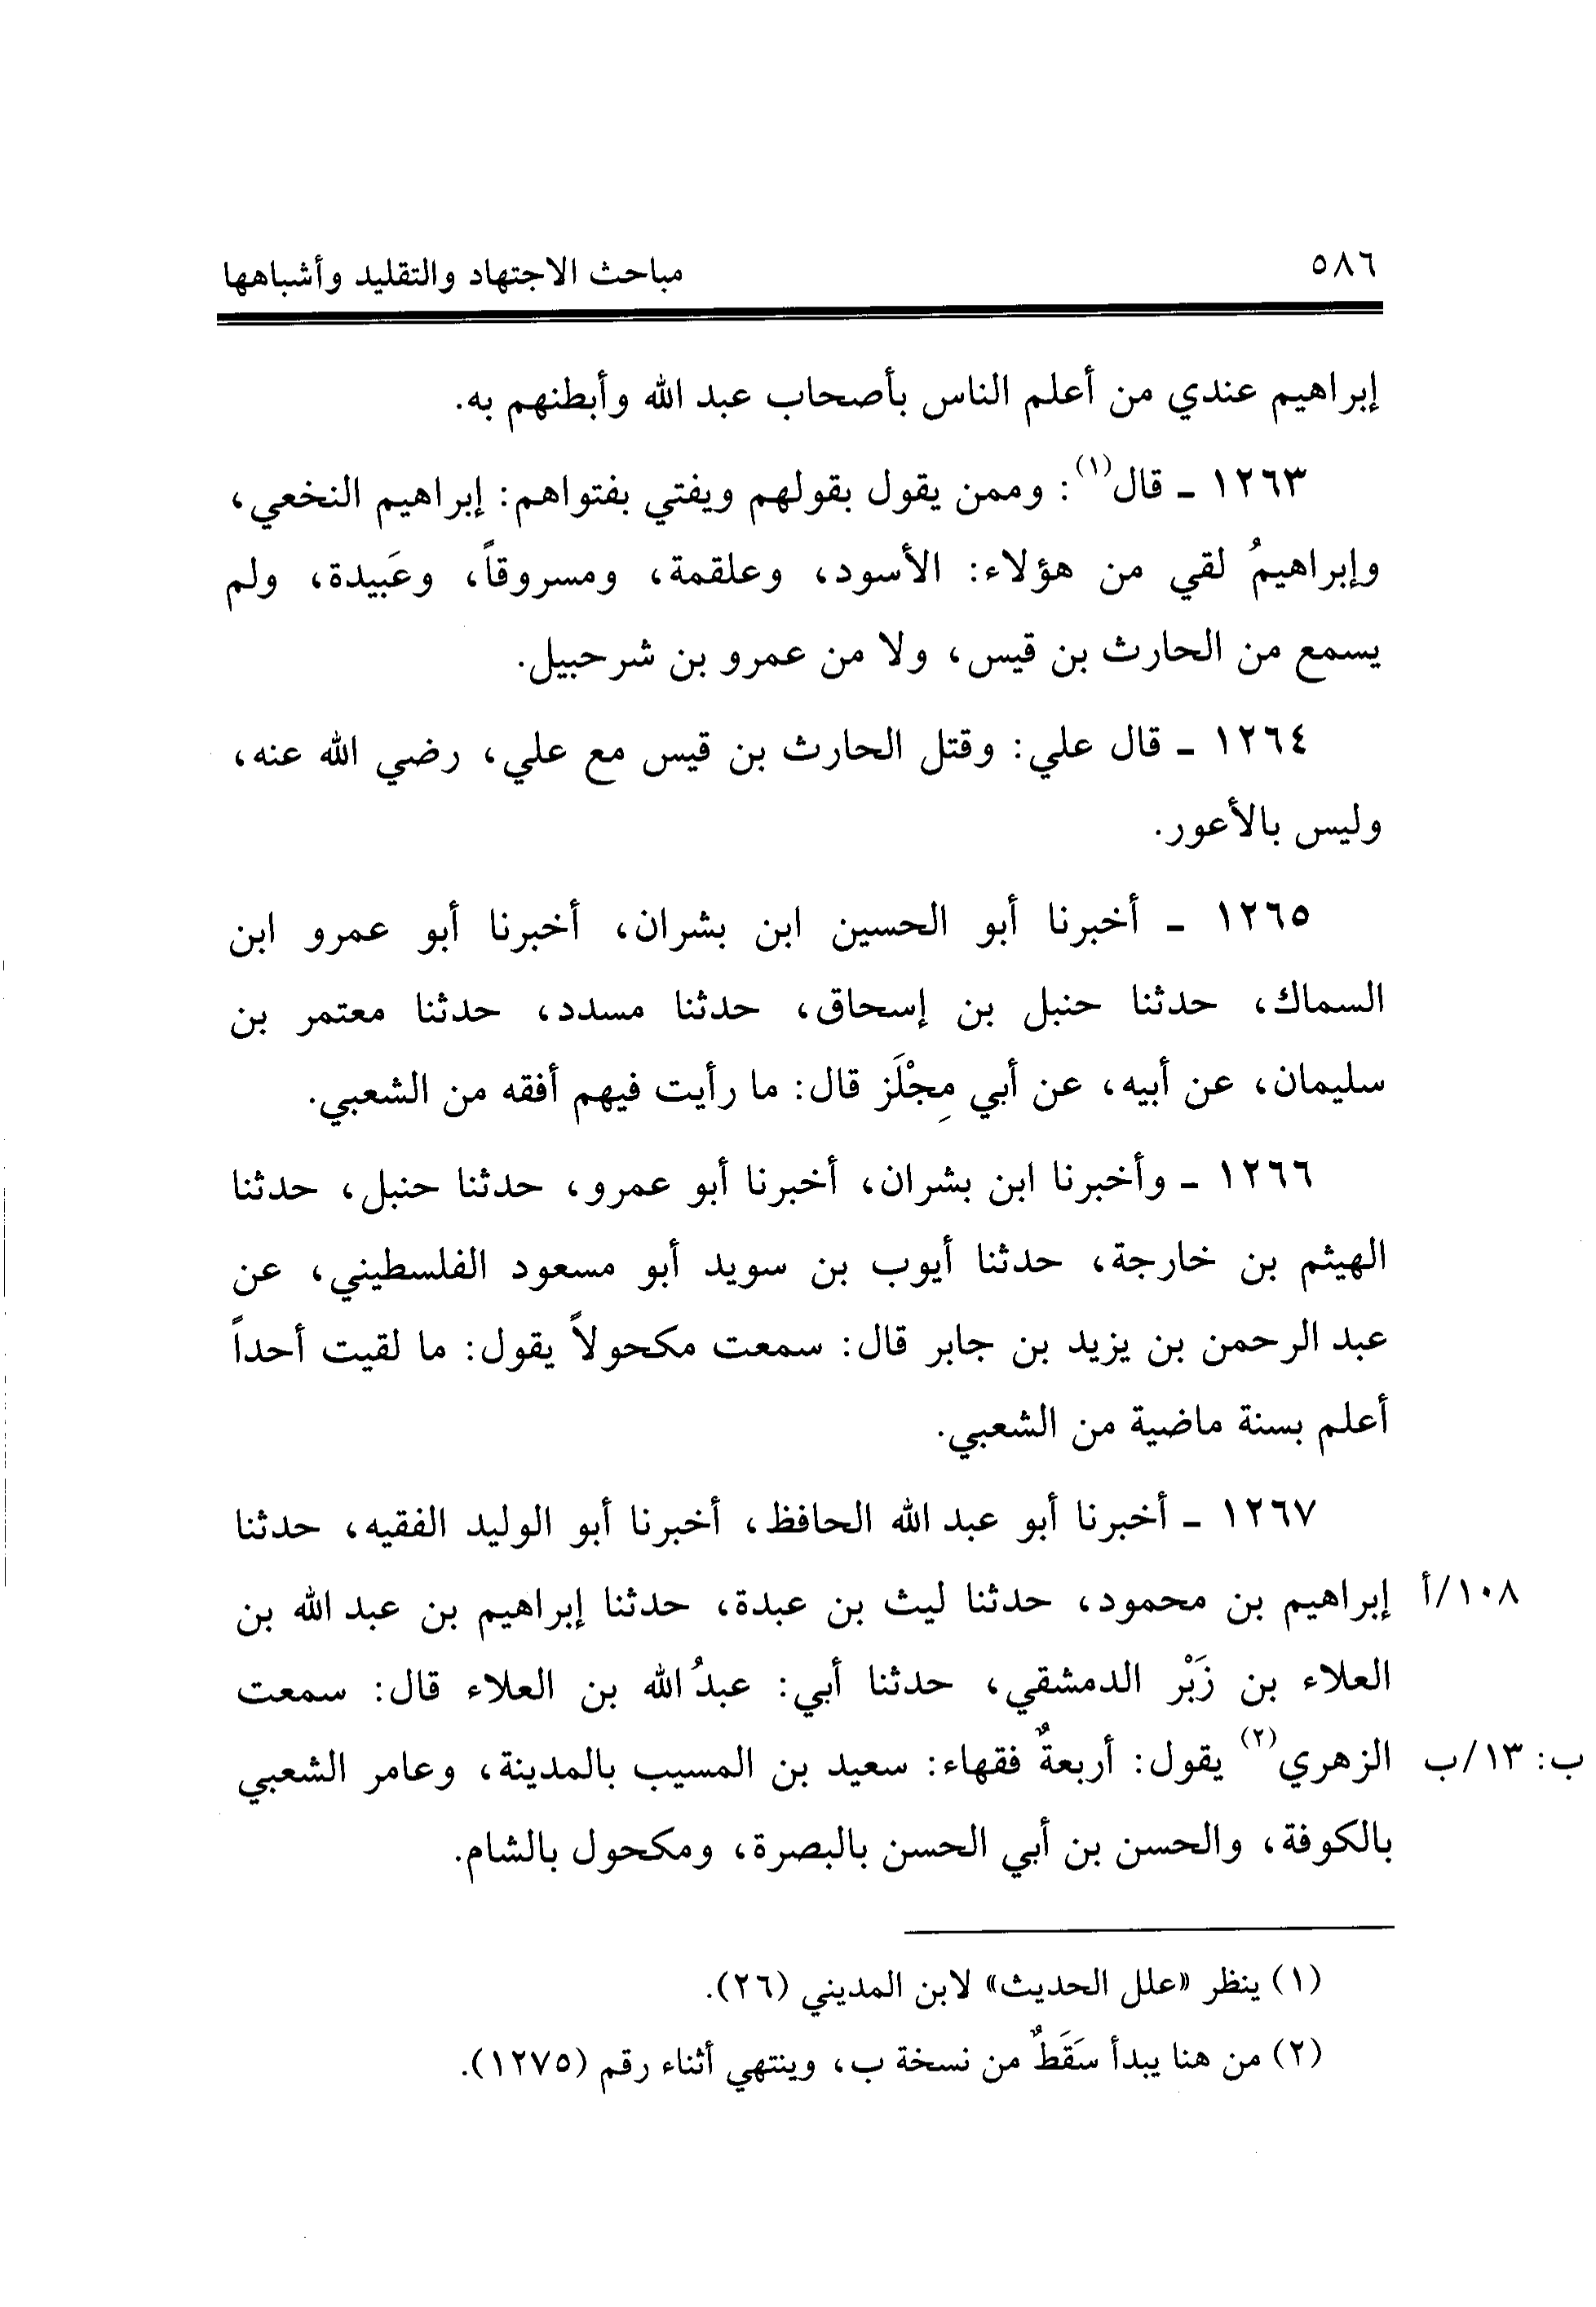 ٥٨٦ مباحث الاجتهاد والتقليد وأشباهها
إبراهيم عندي من أعلم الناس بأصحاب عبد الله وأبطنهم به.
١٢٦٣ ـ قال(١): وممن يقول بقولهم ويفتي بفتواهم: إبراهيم النخعي،
وإبراهيمُ لقي من هؤلاء: الأسود، وعلقمة، ومسروقاً، وعَبيدة، ولم
يسمع من الحارث بن قيس، ولا من عمرو بن شرحبيل.
١٢٦٤ ـ قال علي: وقتل الحارث بن قيس مع علي، رضي الله عنه،
وليس بالأعور.
١٢٦٥ ـ أخبرنا أبو الحسين ابن بشران، أخبرنا أبو عمرو ابن
السماك، حدثنا حنبل بن إسحاق، حدثنا مسدد، حدثنا معتمر بن
سليمان، عن أبيه، عن أبي مِجْلَز قال: ما رأيت فيهم أفقه من الشعبي.
١٢٦٦ ـ وأخبرنا ابن بشران، أخبرنا أبو عمرو، حدثنا حنبل، حدثنا
الهيثم بن خارجة، حدثنا أيوب بن سويد أبو مسعود الفلسطيني، عن
عبد الرحمن بن يزيد بن جابر قال: سمعت مكحولاً يقول: ما لقيت أحداً
أعلم بسنة ماضية من الشعبي.
١٢٦٧ ـ أخبرنا أبو عبد الله الحافظ، أخبرنا أبو الوليد الفقيه، حدثنا
١٠٨/أ إبراهيم بن محمود، حدثنا ليث بن عبدة، حدثنا إبراهيم بن عبد الله بن
العلاء بن زَبْر الدمشقي، حدثنا أبي: عبدُ الله بن العلاء قال: سمعت
ب: ١٣/ب الزهري(٢) يقول: أربعةٌ فقهاء: سعيد بن المسيب بالمدينة، وعامر الشعبي
بالكوفة، والحسن بن أبي الحسن بالبصرة، ومكحول بالشام.
(١) ينظر «علل الحديث» لابن المديني (٢٦).
(٢) من هنا يبدأ سَقَطٌ من نسخة ب، وينتهي أثناء رقم (١٢٧٥).